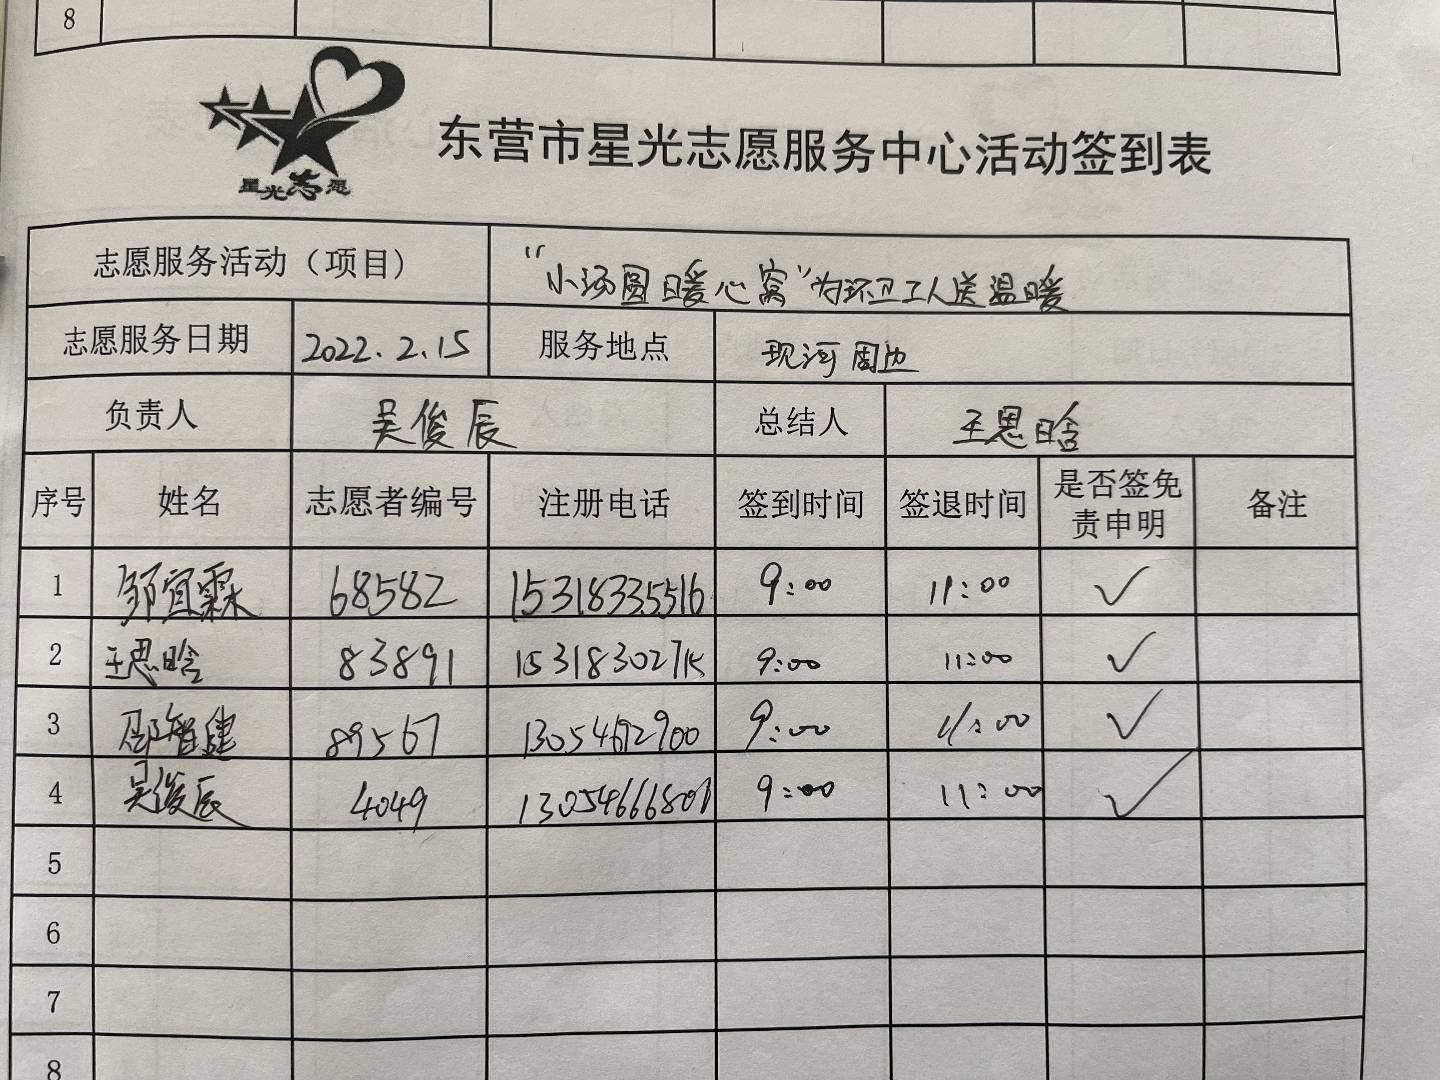 8
星光志愿
东营市星光志愿服务中心活动签到表
志愿服务活动（项目） “小汤圆暖心窝”为环卫工人送温暖
志愿服务日期 2022.2.15 服务地点 现河周边
负责人 吴俊辰 总结人 王思晗
序号 姓名 志愿者编号 注册电话 签到时间 签退时间 是否签免责申明 备注
1 邹宜霖 68582 15318335516 9:00 11:00 ✓
2 王思晗 83891 9:00 11:00 ✓
3 邵智健 89567 13054692900 9:00 11:00 ✓
4 吴俊辰 4049 13054666801 9:00 11:00 ✓
5
6
7
8